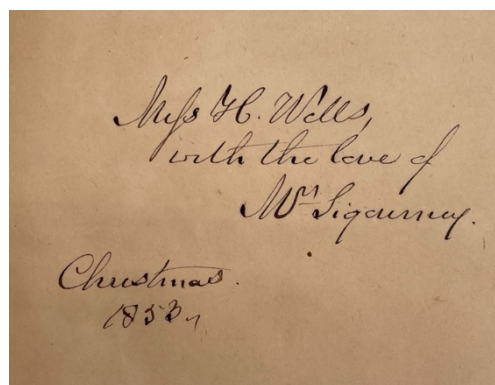 Miss H. Wells,
with the love of
Mrs Sigourney.
Christmas.
1853.